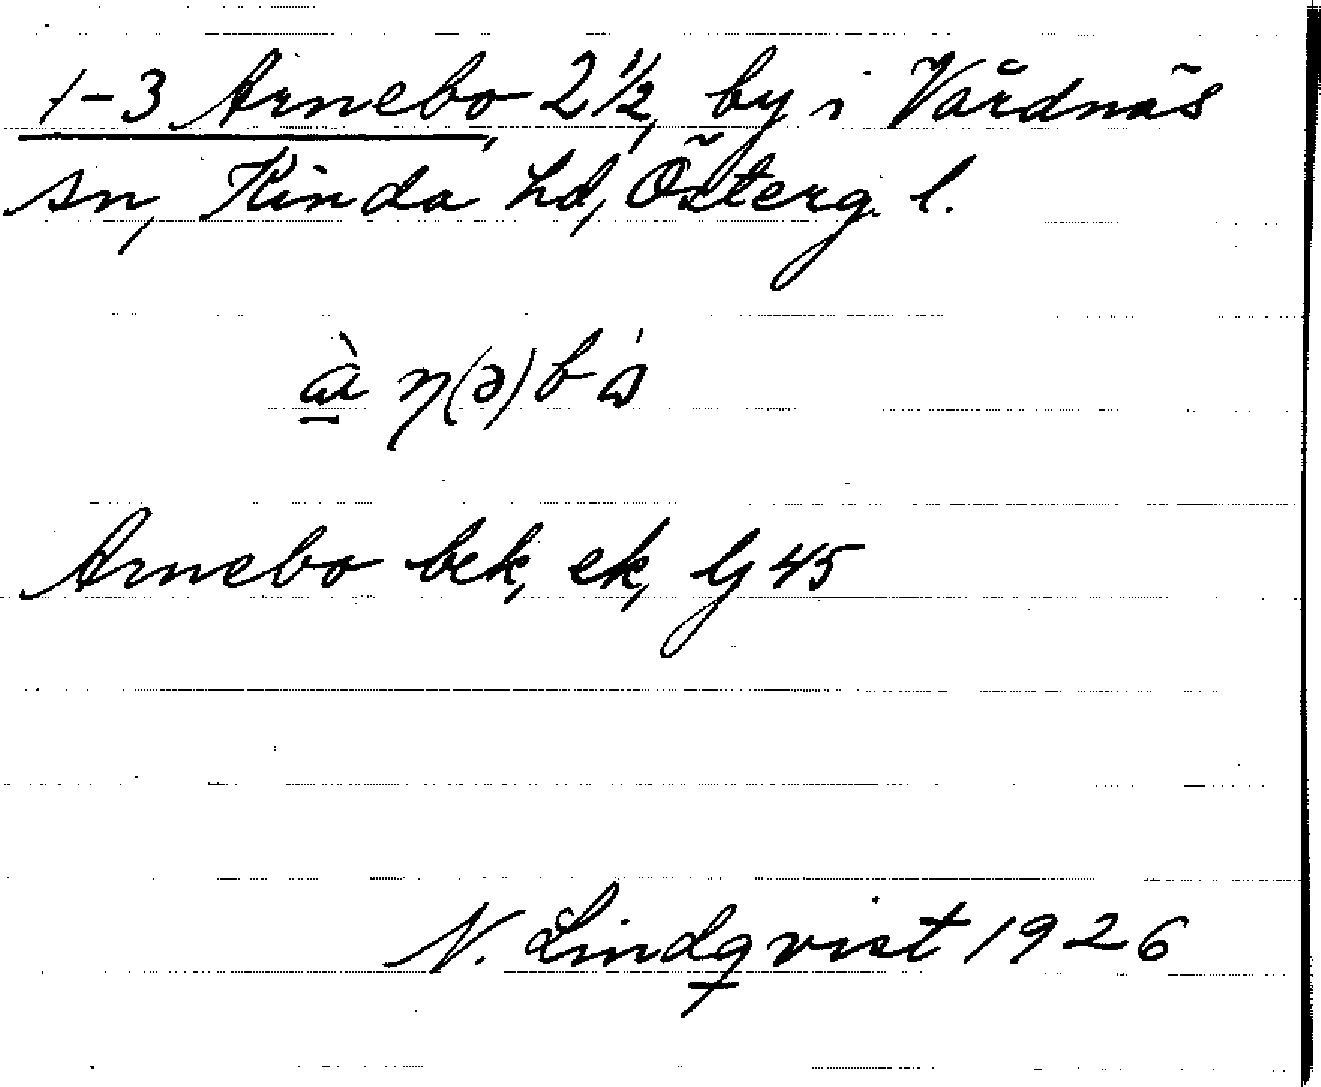 1-3 Arnebo, 2 1/2, by i Vårdnäs
sn, Kinda hd, Österg. l.
Arnebo bek, ek, lj 45
N. Lindqvist 1926